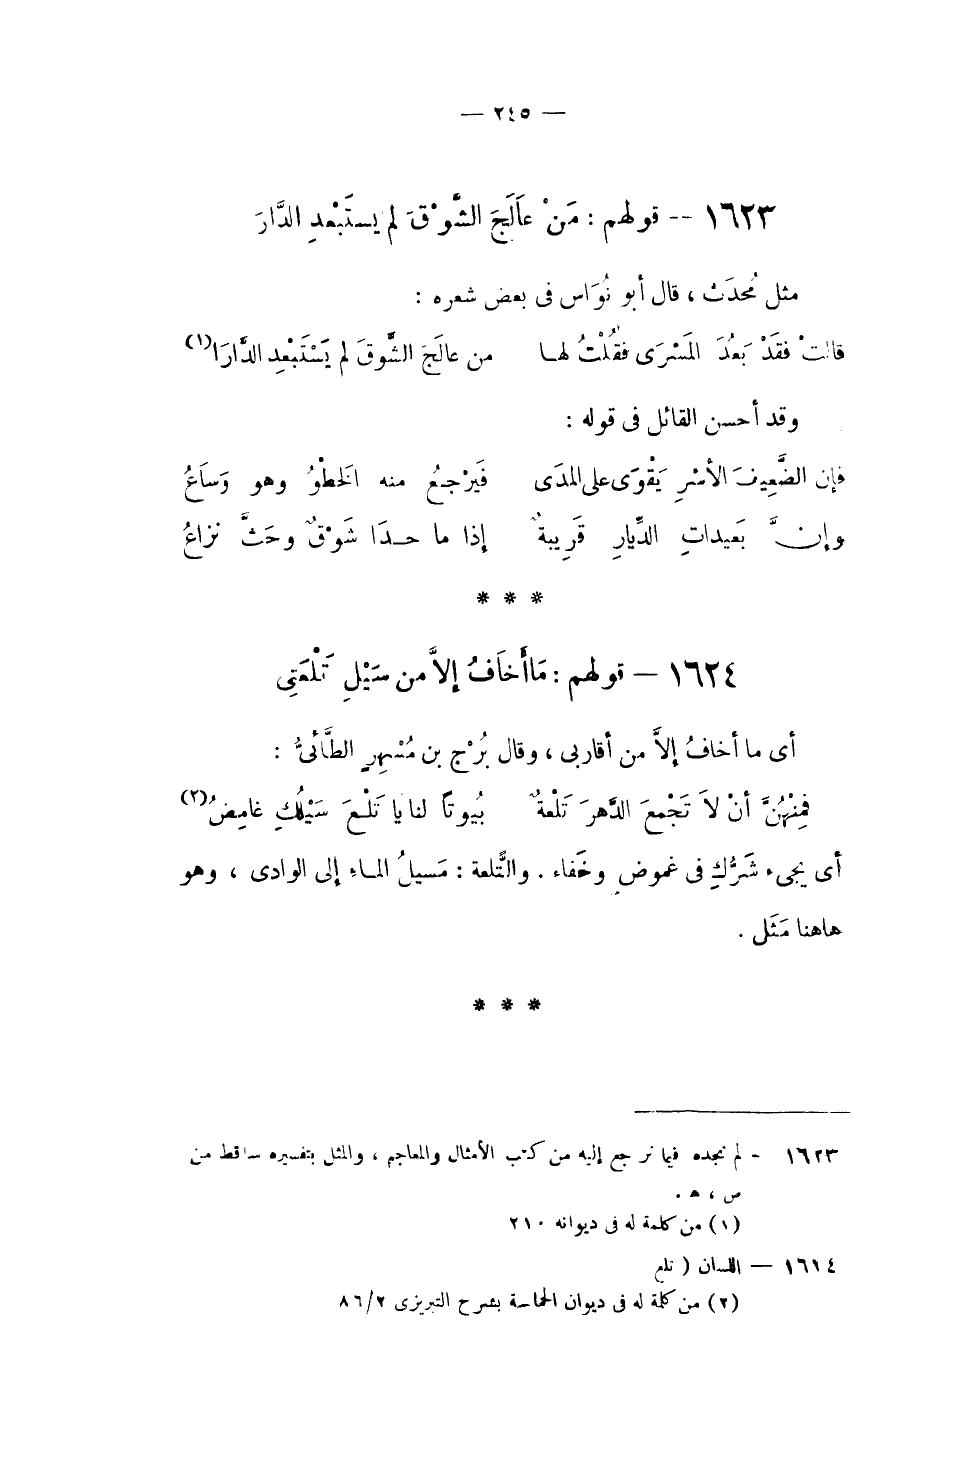 — ٢٤٥ —
١٦٢٣ -- قولهم : مَنْ عَالَجَ الشَّوْقَ لم يستَبْعدِ الدَّارَ
مثل مُحدَث ، قال أبو نُوَاس فى بعض شعره :
قالتْ فقَدْ بَعُدَ المَسْرَى فقُلْتُ لها من عالَجَ الشَّوقَ لم يَسْتَبْعِدِ الدَّارَا(١)
وقد أحسن القائل فى قوله :
فإن الضَّعِيفَ الأسْرِ يَقْوَى على المدَى فَيَرْجعُ منه الخَطْوُ وهو وَسَاعُ
وإنَّ بَعيداتِ الدِّيارِ قَرِيبةٌ إذا ما حدَا شَوْقٌ وحَثَّ نزاعُ
* * *
١٦٢٤ — قولهم : مَا أَخَافُ إلاَّ من سَيْلِ تَلْعَتِى
أى ما أخافُ إلاَّ من أقاربى ، وقال بُرْج بن مُسْهِرٍ الطَّائىُّ :
فمِنْهُنَّ أنْ لاَ تَجْمعَ الدَّهرَ تَلْعةٌ بُيوتًا لنا يا تَلْعَ سَيْلُكِ غامِضُ(٢)
أى يجىء شَرُّكِ فى غموضٍ وخَفاء . والتَّلعة : مَسيلُ الماء إلى الوادى ، وهو
هاهنا مَثَل .
* * *
١٦٢٣ - لم نجده فيما نرجع إليه من كتب الأمثال والمعاجم ، والمثل بتفسيره ساقط من
ص ، ھ .
(١) من كلمة له فى ديوانه ٢١٠
١٦١٤ — اللسان ( تلع
(٢) من كلمة له فى ديوان الحماسة بشرح التبريزى ٨٦/٢